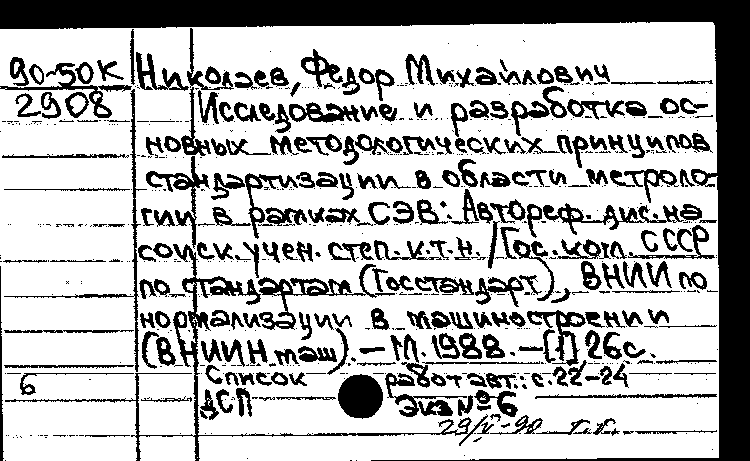 90-50К Николаев, Федор Михайлович
2908 Исследование и разработка ос-
новных методологических принципов
стандартизации в области метроло-
гии в рамках СЭВ: Автореф. дис. на
соиск. учен. степ. к.т.н. /Гос. ком. СССР
по стандартам (Госстандарт), ВНИИ по
нормализации в машиностроении
(ВНИИНмаш). – М. 1988. – [1] 26с.
Список работ авт.: с. 22-24
6 ДСП Экз № 6
29/V-90